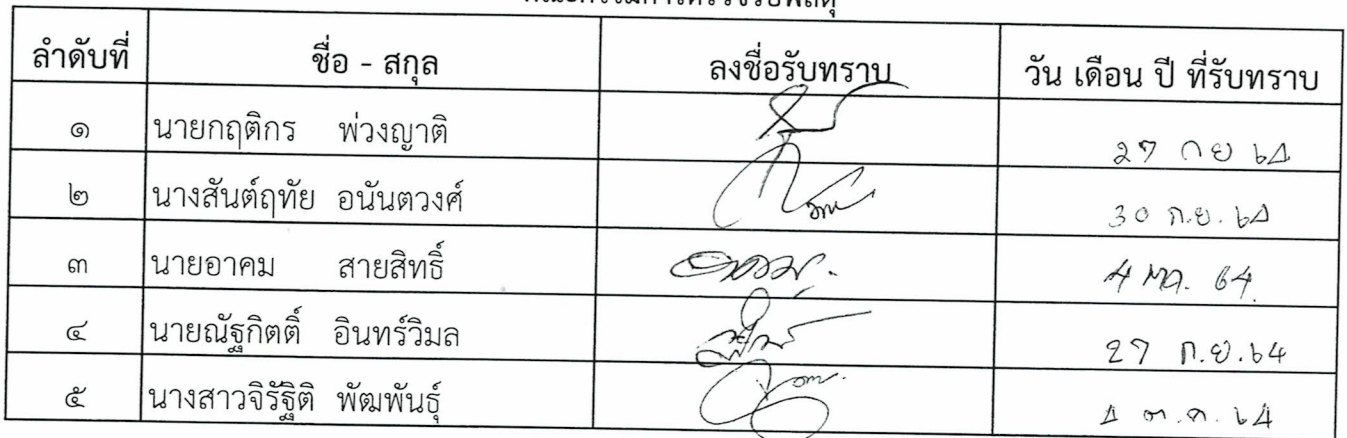 คณะกรรมการตรวจรับพัสดุ
ลำดับที่ ชื่อ - สกุล ลงชื่อรับทราบ วัน เดือน ปี ที่รับทราบ
๑ นายกฤติกร พ่วงญาติ 27 กย 64
๒ นางสันต์ฤทัย อนันตวงศ์ 30 ก.ย. 64
๓ นายอาคม สายสิทธิ์ 4 ตค. 64
๔ นายณัฐกิตติ์ อินทร์วิมล 27 ก.ย.64
๕ นางสาวจิรัฐิติ พัฒพันธุ์ 4 ต.ค. 64